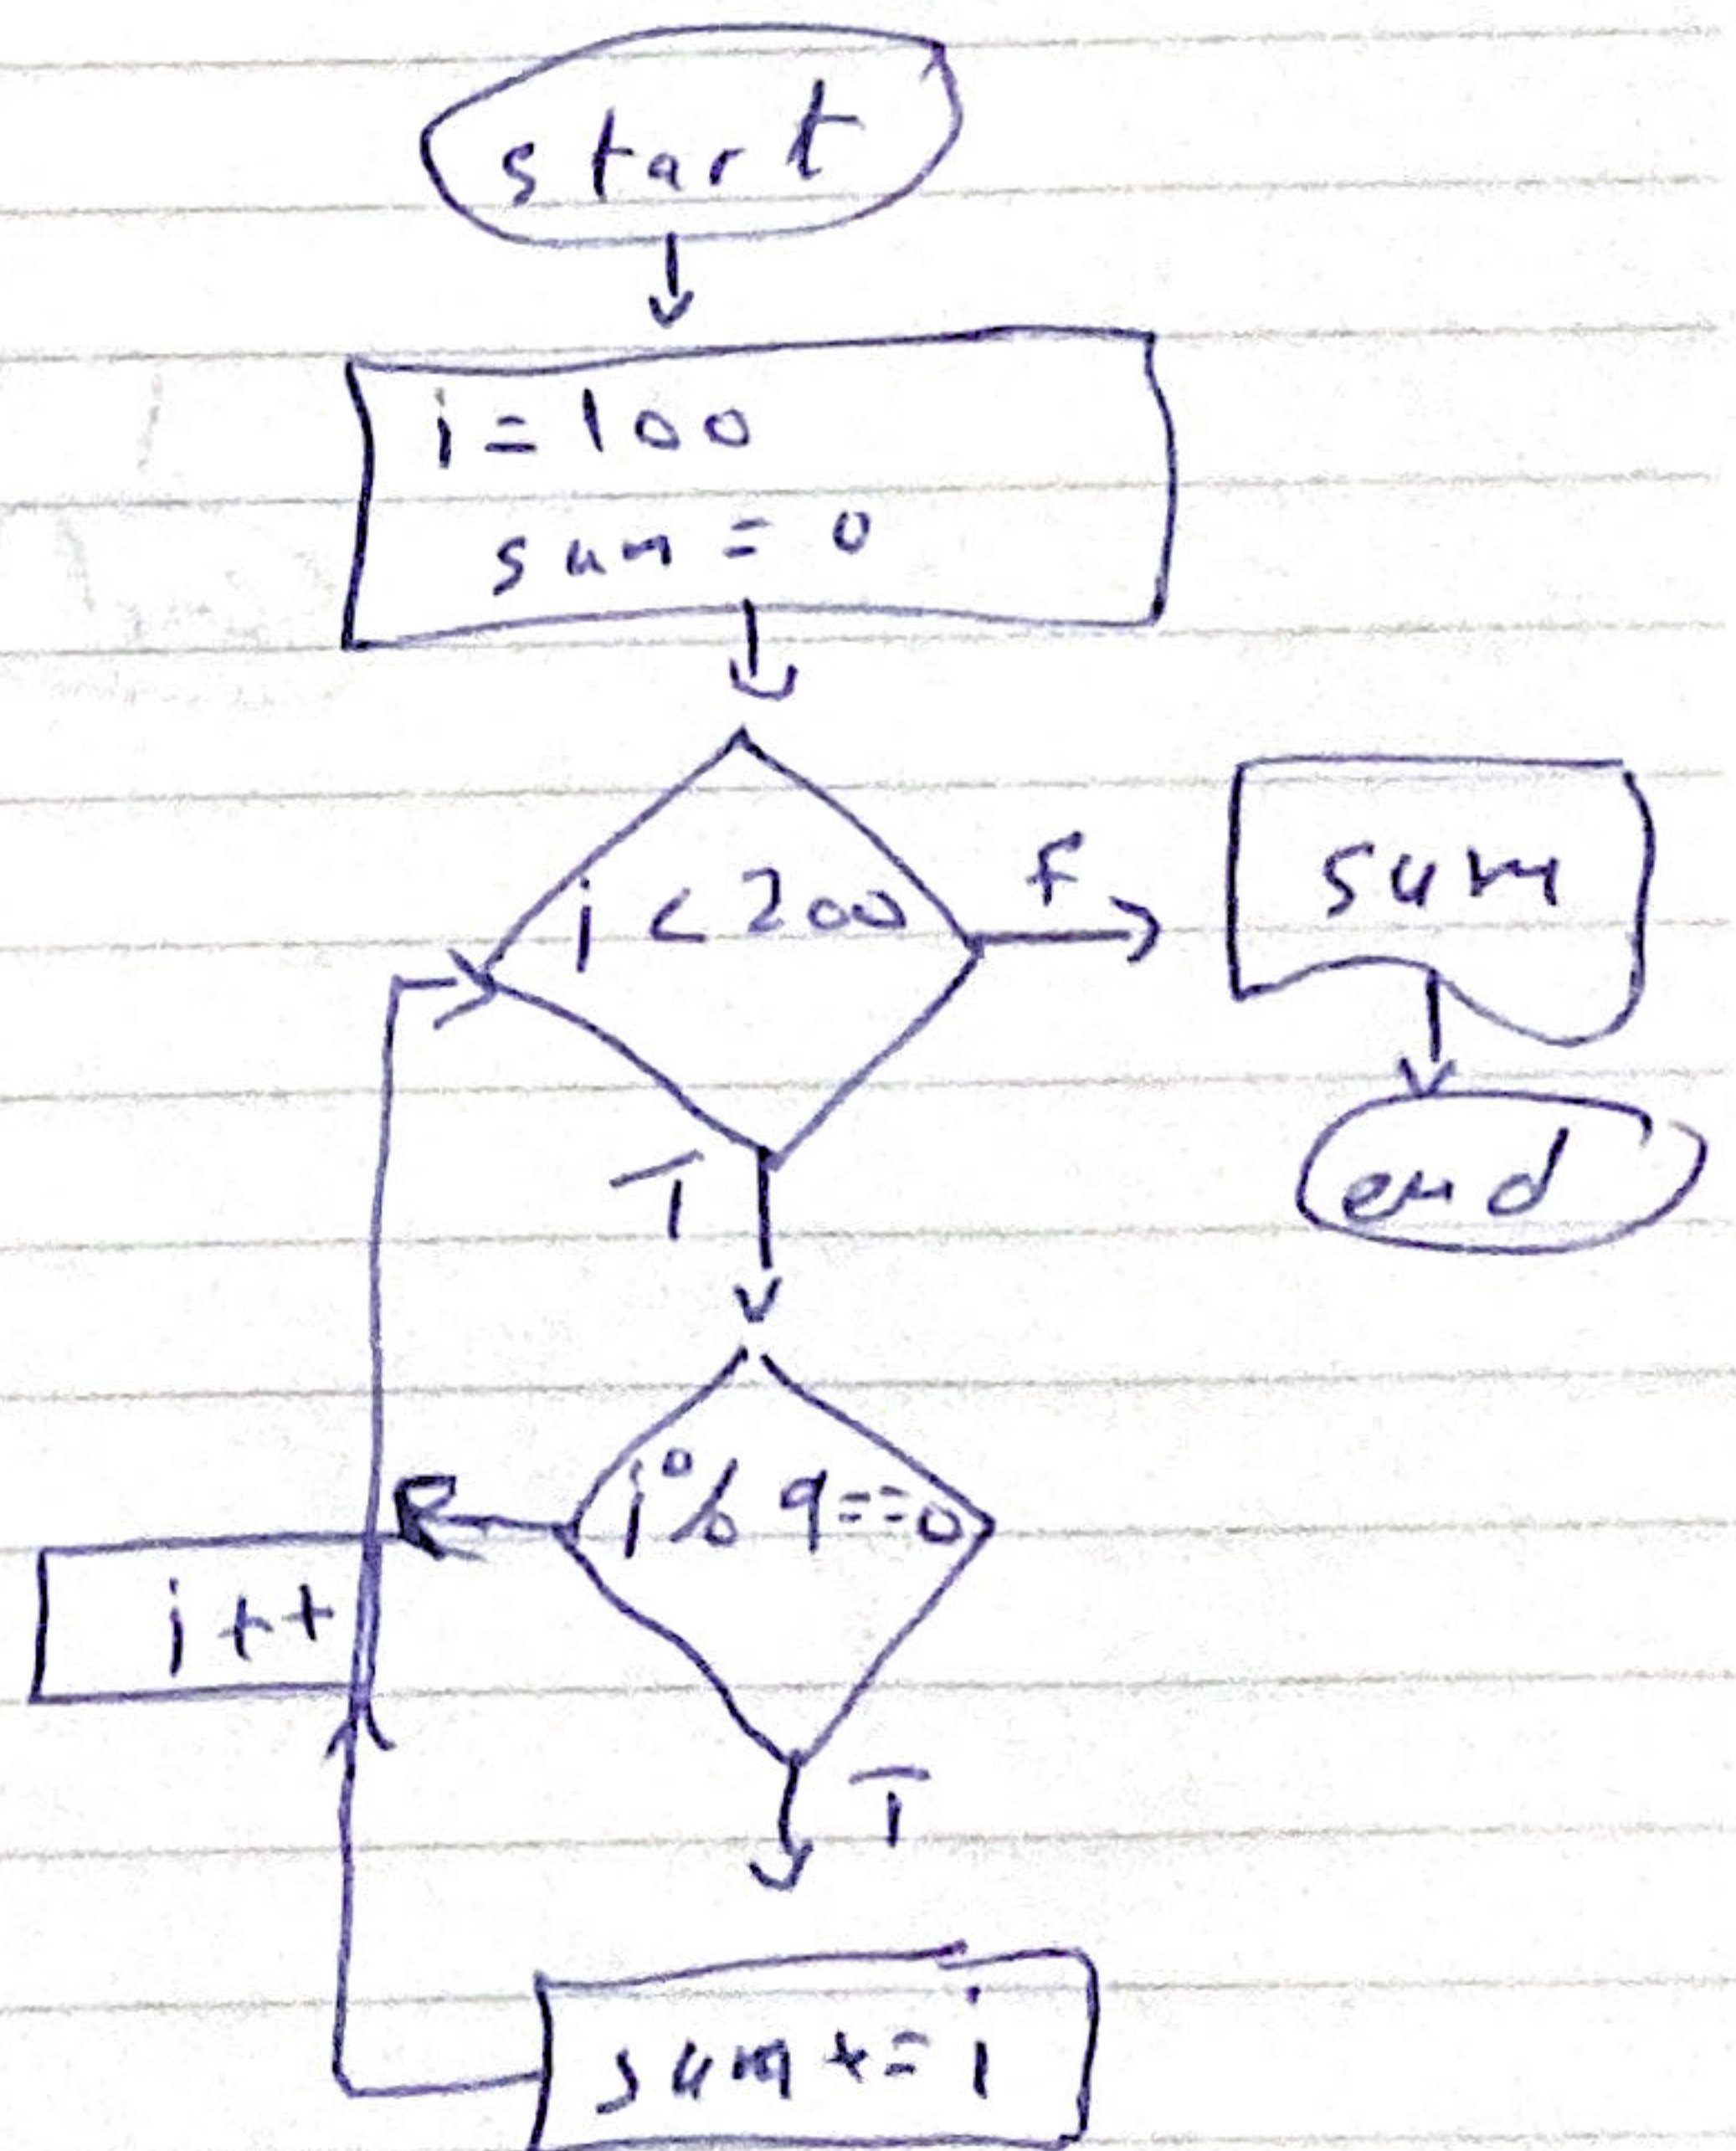 start
i = 100
sum = 0
i < 200
F
sum
end
T
i % 9 == 0
i ++
T
sum += i